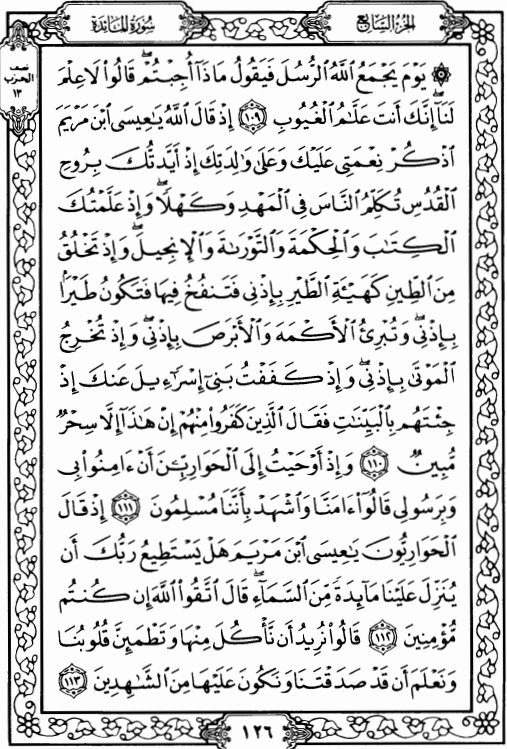 سُورَةُ المَائِدَة
الجُزءُ السَّابِع
نصف
الحزب
١٣
۞ يَوْمَ يَجْمَعُ ٱللَّهُ ٱلرُّسُلَ فَيَقُولُ مَاذَآ أُجِبْتُمْ ۖ قَالُوا۟ لَا عِلْمَ
لَنَآ ۖ إِنَّكَ أَنتَ عَلَّٰمُ ٱلْغُيُوبِ ١٠٩ إِذْ قَالَ ٱللَّهُ يَٰعِيسَى ٱبْنَ مَرْيَمَ
ٱذْكُرْ نِعْمَتِى عَلَيْكَ وَعَلَىٰ وَٰلِدَتِكَ إِذْ أَيَّدتُّكَ بِرُوحِ
ٱلْقُدُسِ تُكَلِّمُ ٱلنَّاسَ فِى ٱلْمَهْدِ وَكَهْلًا ۖ وَإِذْ عَلَّمْتُكَ
ٱلْكِتَٰبَ وَٱلْحِكْمَةَ وَٱلتَّوْرَىٰةَ وَٱلْإِنجِيلَ ۖ وَإِذْ تَخْلُقُ
مِنَ ٱلطِّينِ كَهَيْـَٔةِ ٱلطَّيْرِ بِإِذْنِى فَتَنفُخُ فِيهَا فَتَكُونُ طَيْرًۢا
بِإِذْنِى ۖ وَتُبْرِئُ ٱلْأَكْمَهَ وَٱلْأَبْرَصَ بِإِذْنِى ۖ وَإِذْ تُخْرِجُ
ٱلْمَوْتَىٰ بِإِذْنِى ۖ وَإِذْ كَفَفْتُ بَنِىٓ إِسْرَٰٓءِيلَ عَنكَ إِذْ
جِئْتَهُم بِٱلْبَيِّنَٰتِ فَقَالَ ٱلَّذِينَ كَفَرُوا۟ مِنْهُمْ إِنْ هَٰذَآ إِلَّا سِحْرٌ
مُّبِينٌ ١١٠ وَإِذْ أَوْحَيْتُ إِلَى ٱلْحَوَارِيِّـۧنَ أَنْ ءَامِنُوا۟ بِى
وَبِرَسُولِى قَالُوٓا۟ ءَامَنَّا وَٱشْهَدْ بِأَنَّنَا مُسْلِمُونَ ١١١ إِذْ قَالَ
ٱلْحَوَارِيُّونَ يَٰعِيسَى ٱبْنَ مَرْيَمَ هَلْ يَسْتَطِيعُ رَبُّكَ أَن
يُنَزِّلَ عَلَيْنَا مَآئِدَةً مِّنَ ٱلسَّمَآءِ ۖ قَالَ ٱتَّقُوا۟ ٱللَّهَ إِن كُنتُم
مُّؤْمِنِينَ ١١٢ قَالُوا۟ نُرِيدُ أَن نَّأْكُلَ مِنْهَا وَتَطْمَئِنَّ قُلُوبُنَا
وَنَعْلَمَ أَن قَدْ صَدَقْتَنَا وَنَكُونَ عَلَيْهَا مِنَ ٱلشَّٰهِدِينَ ١١٣
١٢٦